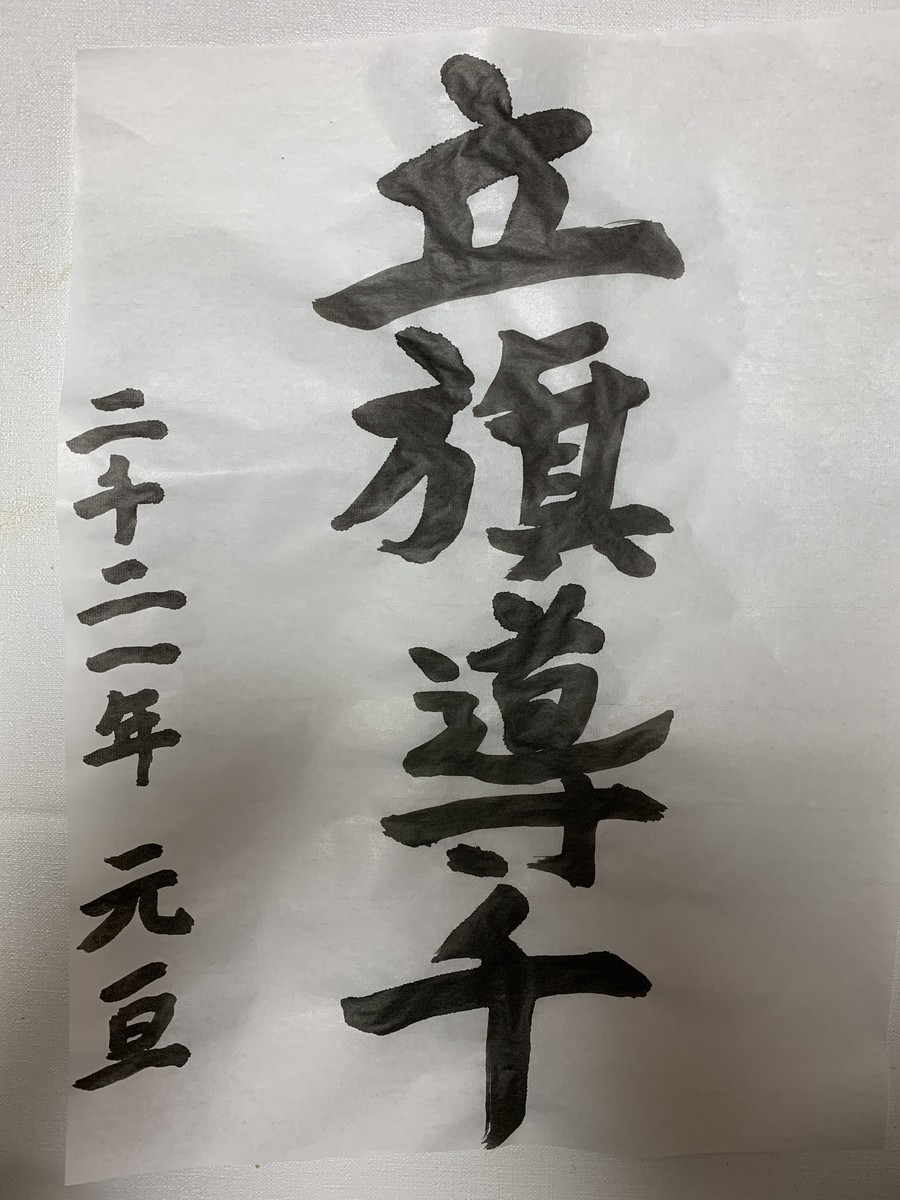 立旗導千
二千二一年 元亘